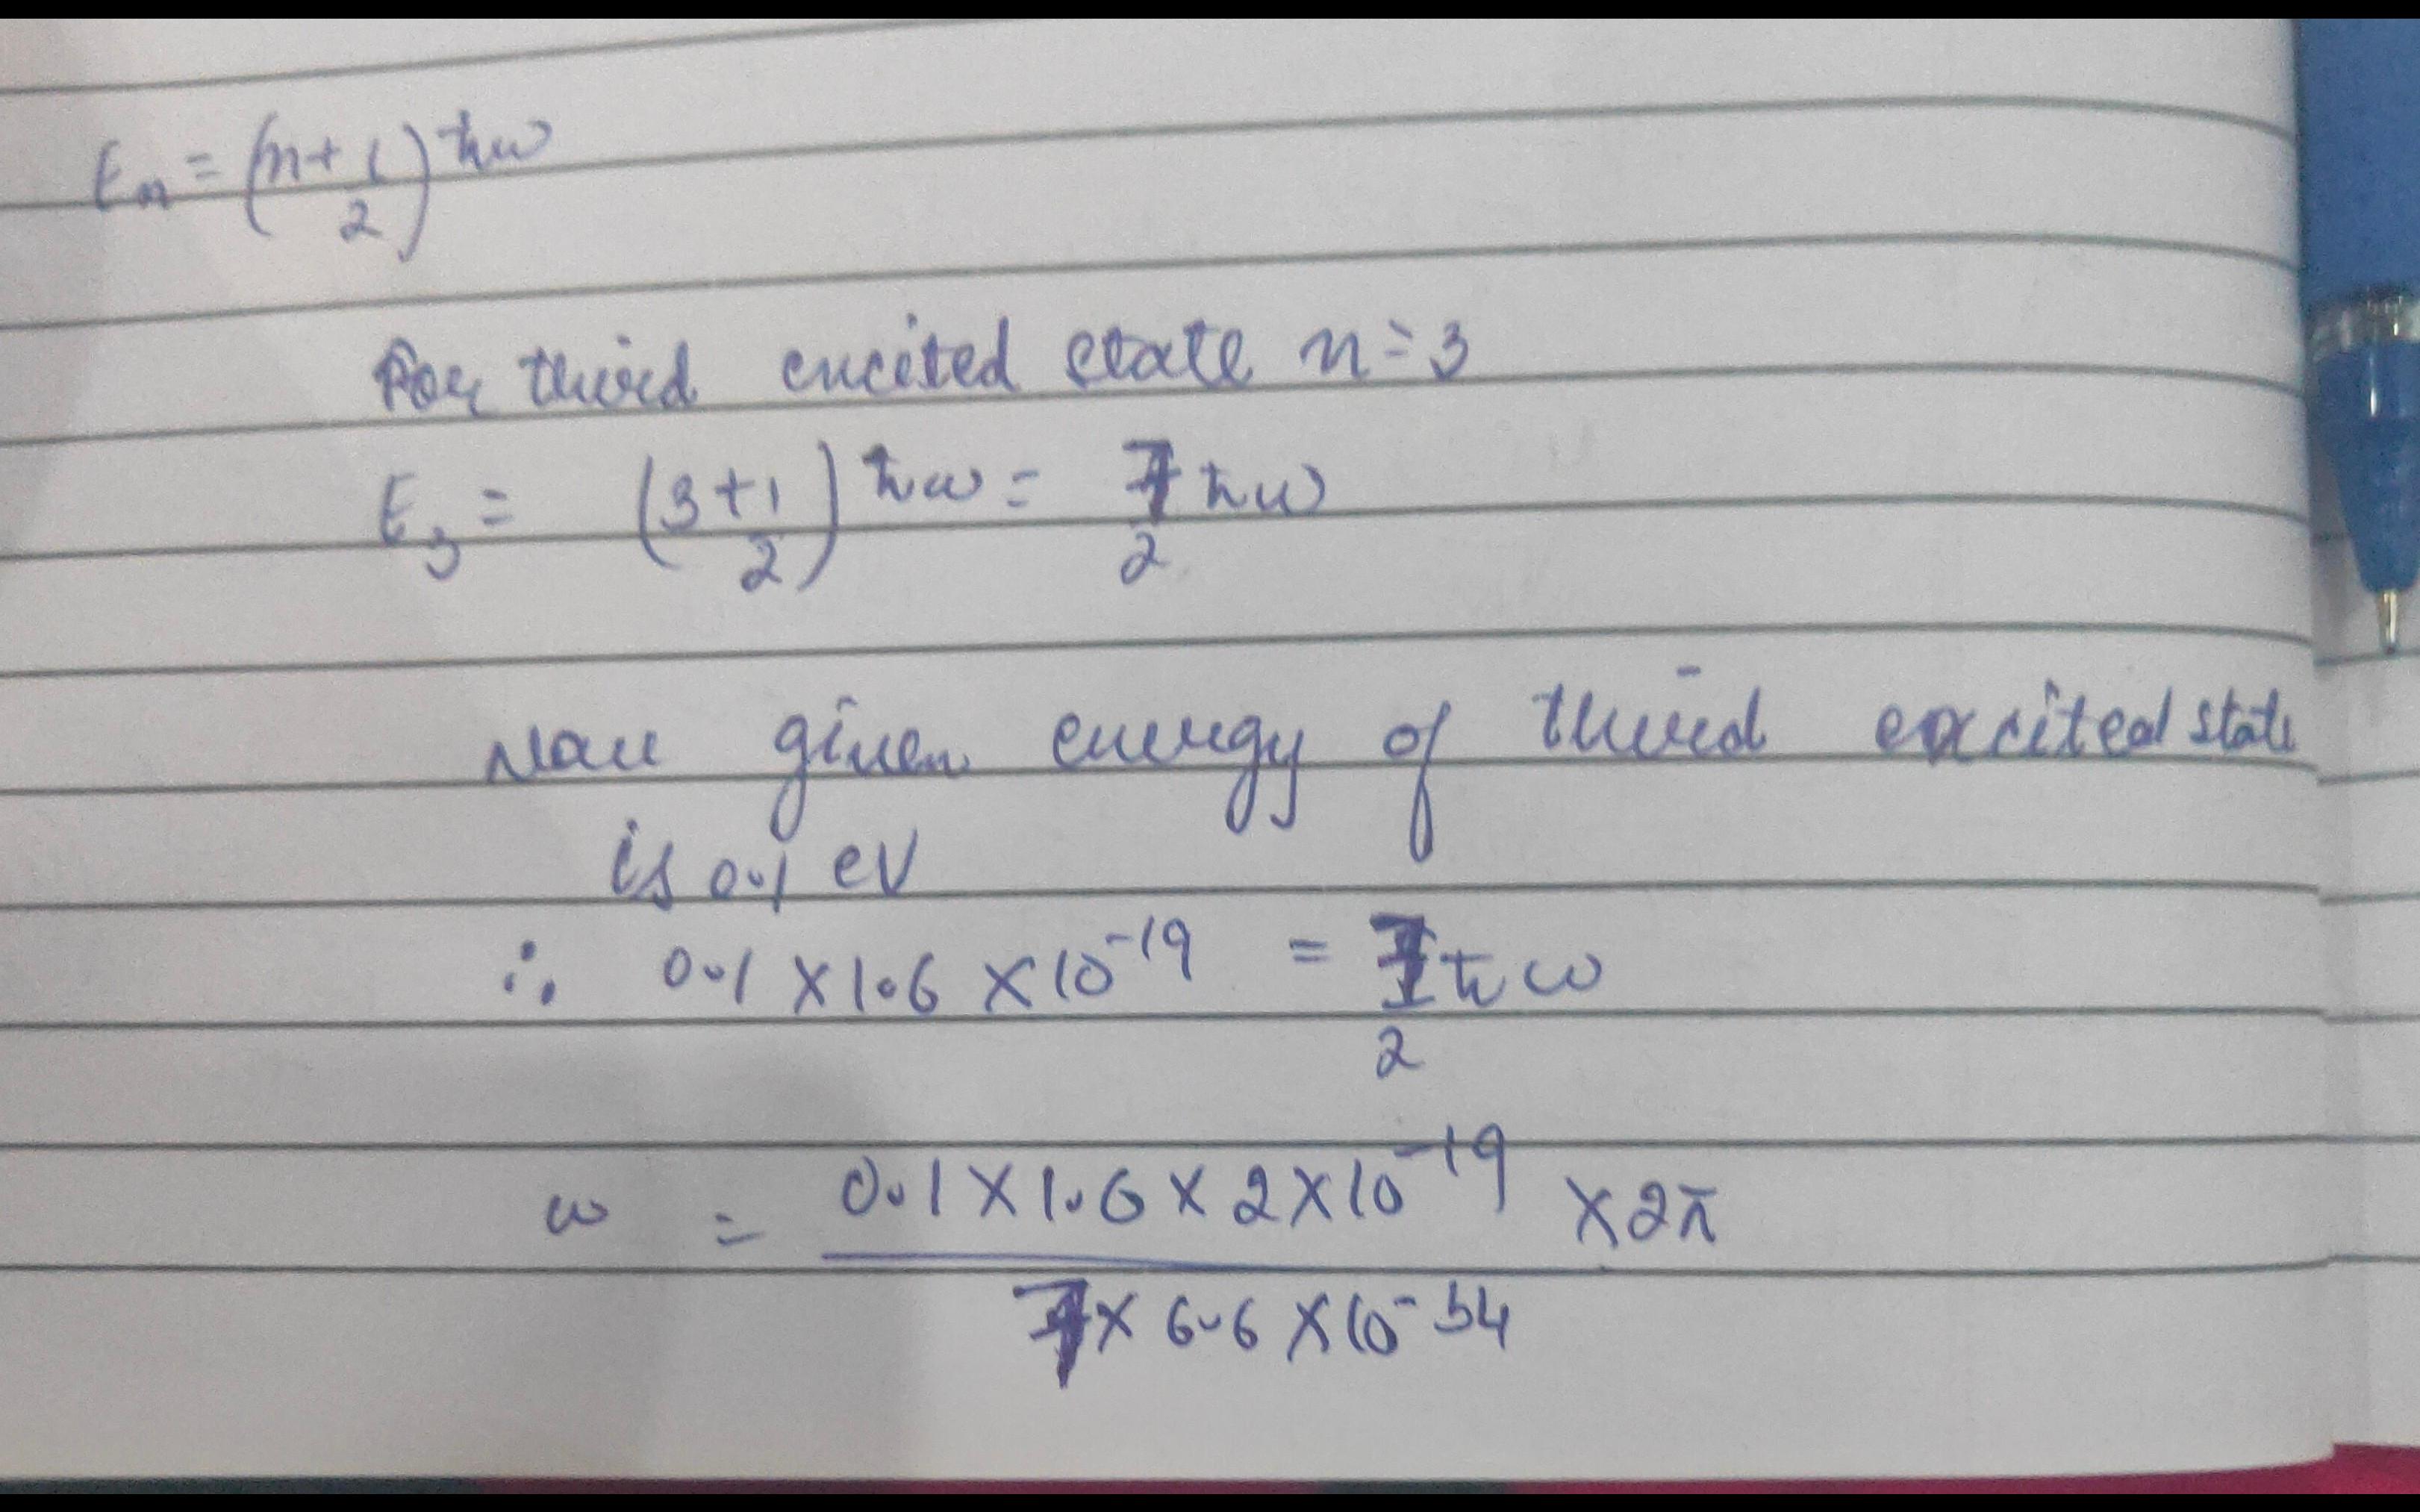 Eₙ = (n + 1/2) ħω
For third excited state n = 3
E₃ = (3 + 1/2) ħω = 7/2 ħω
Now given energy of third excited state
is 0.1 eV
∴ 0.1 × 1.6 × 10⁻¹⁹ = 7/2 ħω
ω = (0.1 × 1.6 × 2 × 10⁻¹⁹)/(7 × 6.6 × 10⁻³⁴) × 2π